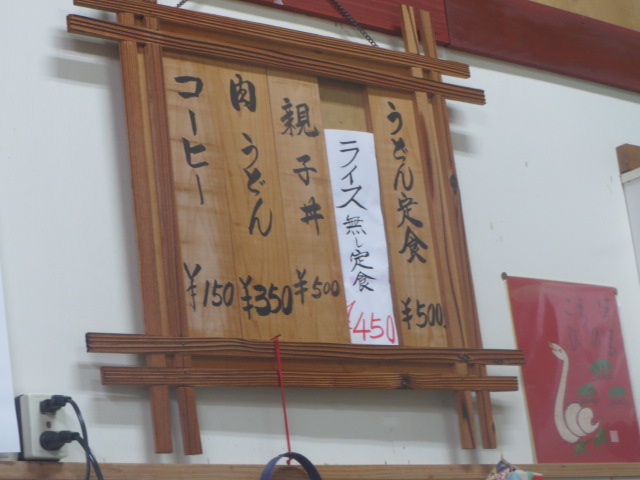 うどん定食 ¥500
ライス無し定食 ¥450
親子丼 ¥500
肉うどん ¥350
コーヒー ¥150